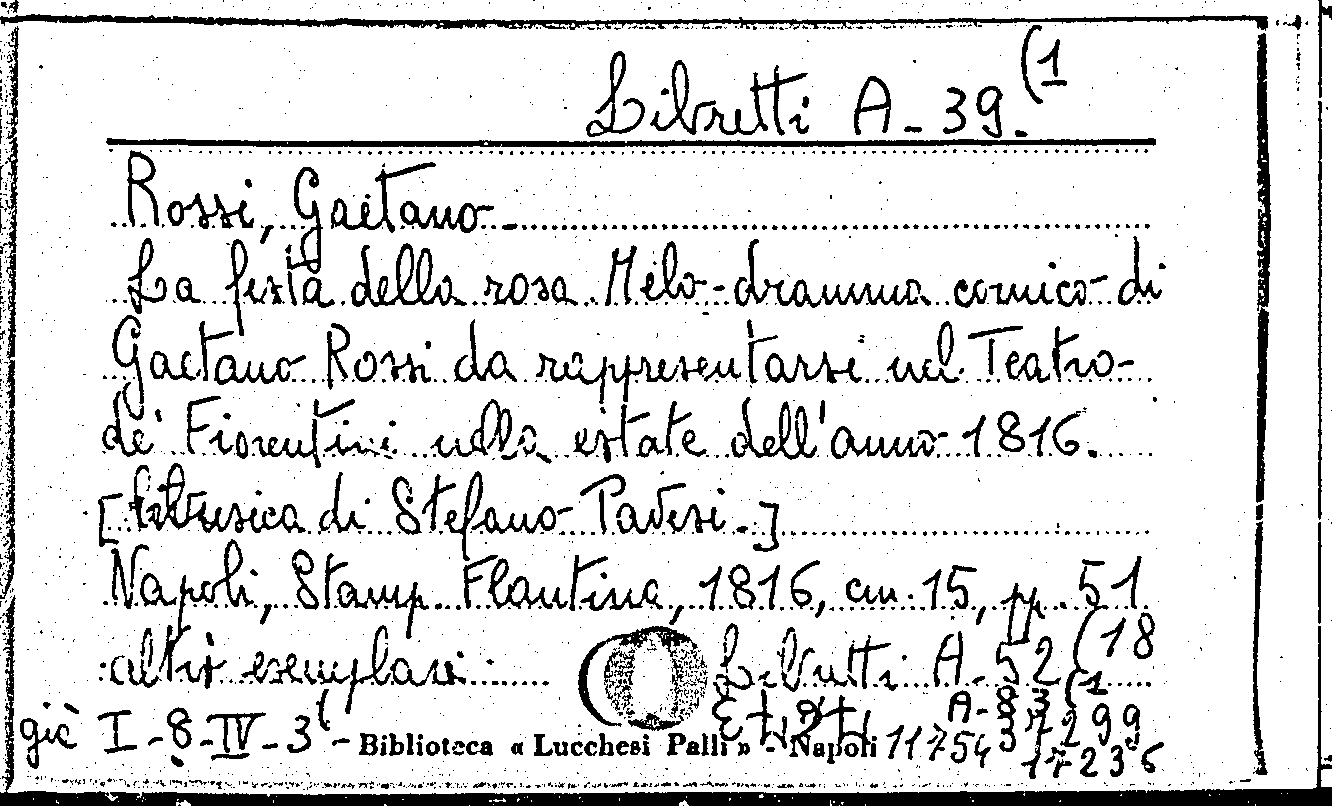 Libretti A-39.(1
Rossi, Gaetano-
La festa della rosa Melo-dramma comico di
Gaetano Rossi da rappresentarsi nel Teatro-
de' Fiorentini nella estate dell'anno 1816.
[Musica di Stefano Pavesi.]
Napoli, Stamp. Flautina, 1816, cm. 15, pp. 51
altri esemplari: Libretti A. 52(18
A-83(1
già I-8-IV-3( 37299
Biblioteca « Lucchesi Palli » - Napoli 11754 17236